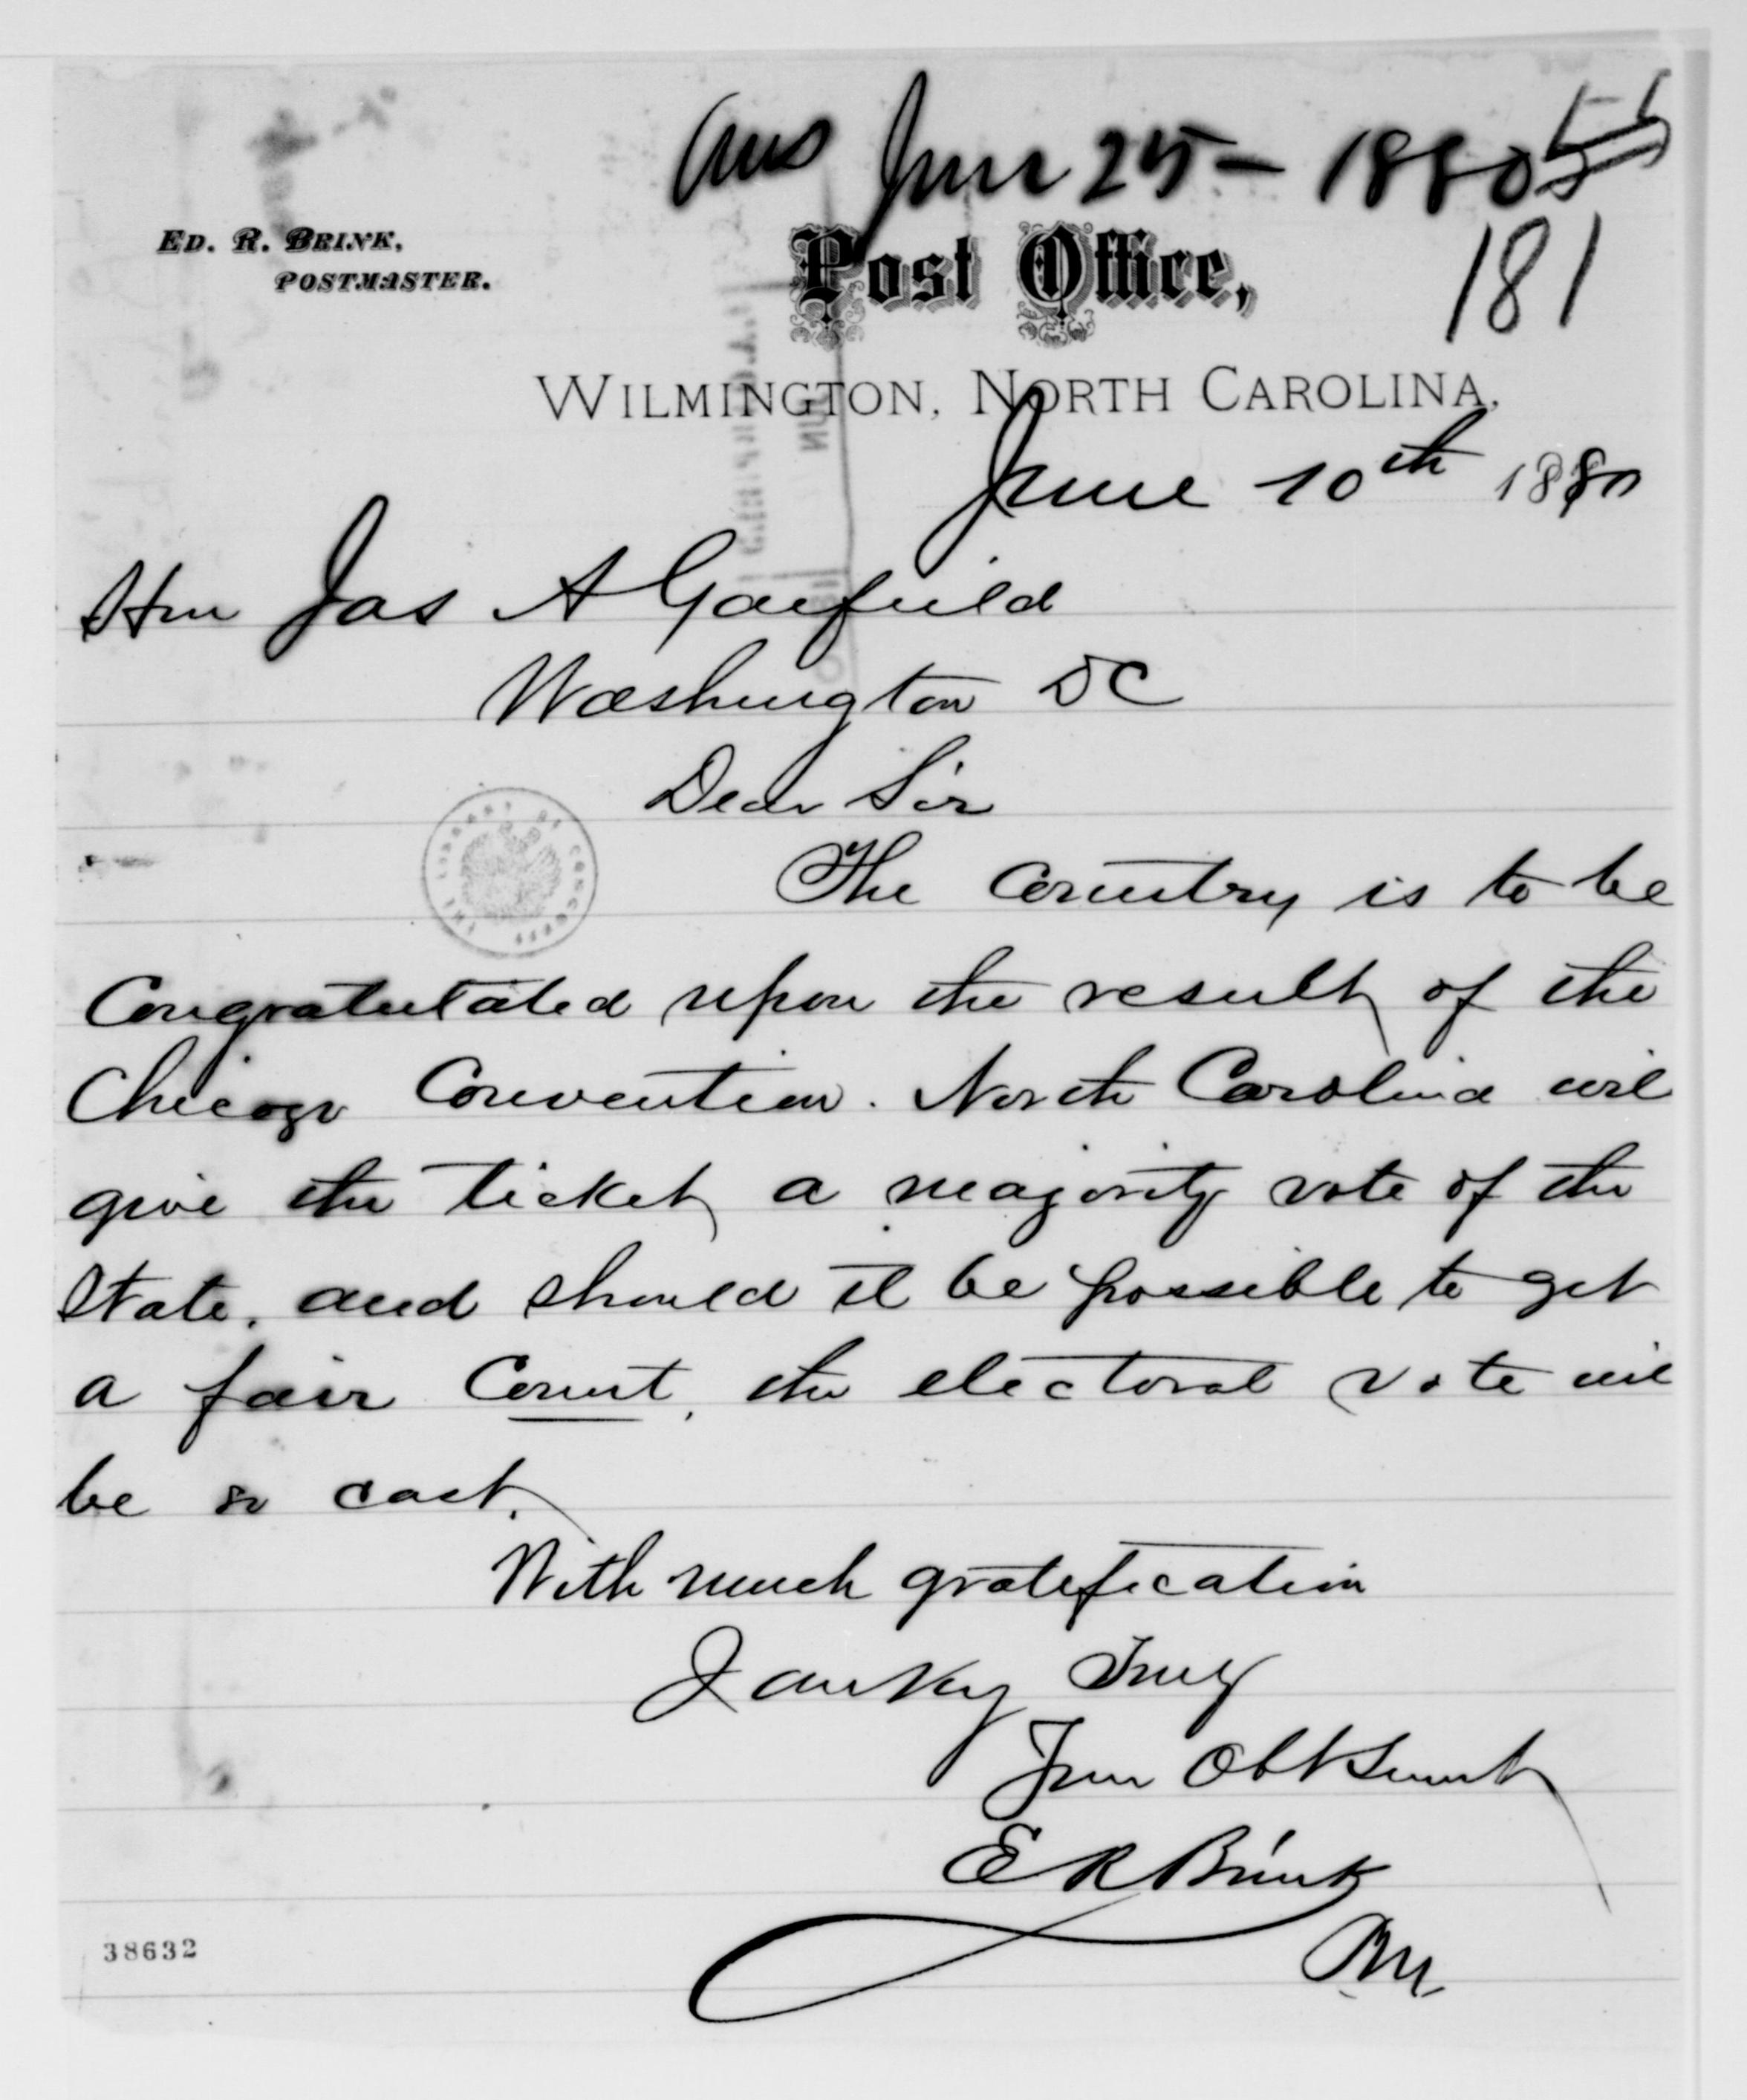 Ans June 25 - 1880 55
181
ED. R. BRINK,
POSTMASTER.
Post Office,
WILMINGTON, NORTH CAROLINA,
June 10th 1880
Hon Jas A Garfield
Washington DC
Dear Sir
The Country is to be
Congratulated upon the result of the
Chicago Convention. North Carolina will
give the ticket a majority vote of the
State, and should it be possible to get
a fair Count, the electoral vote will
be so cast.
With much gratification
I am Very Truly
Your Obt Servant
E R Brink
PM.
THE LIBRARY OF CONGRESS
38632